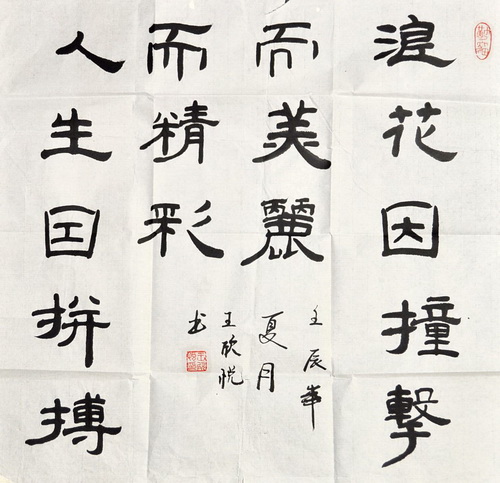 浪花因撞擊
而美麗
人生因拼搏
而精彩
壬辰年
夏月
王欣悦
书